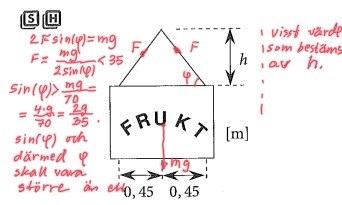 S H
2F sin(φ) = mg
F = mg / 2sin(φ) < 35
sin(φ) > mg / 70 =
= 4·g / 70 = 2g / 35.
sin(φ) och
därmed φ
skall vara
större än ett
visst värde
som bestäms
av h.
F F
h
φ
FRUKT
[m]
mg
0,45 0,45